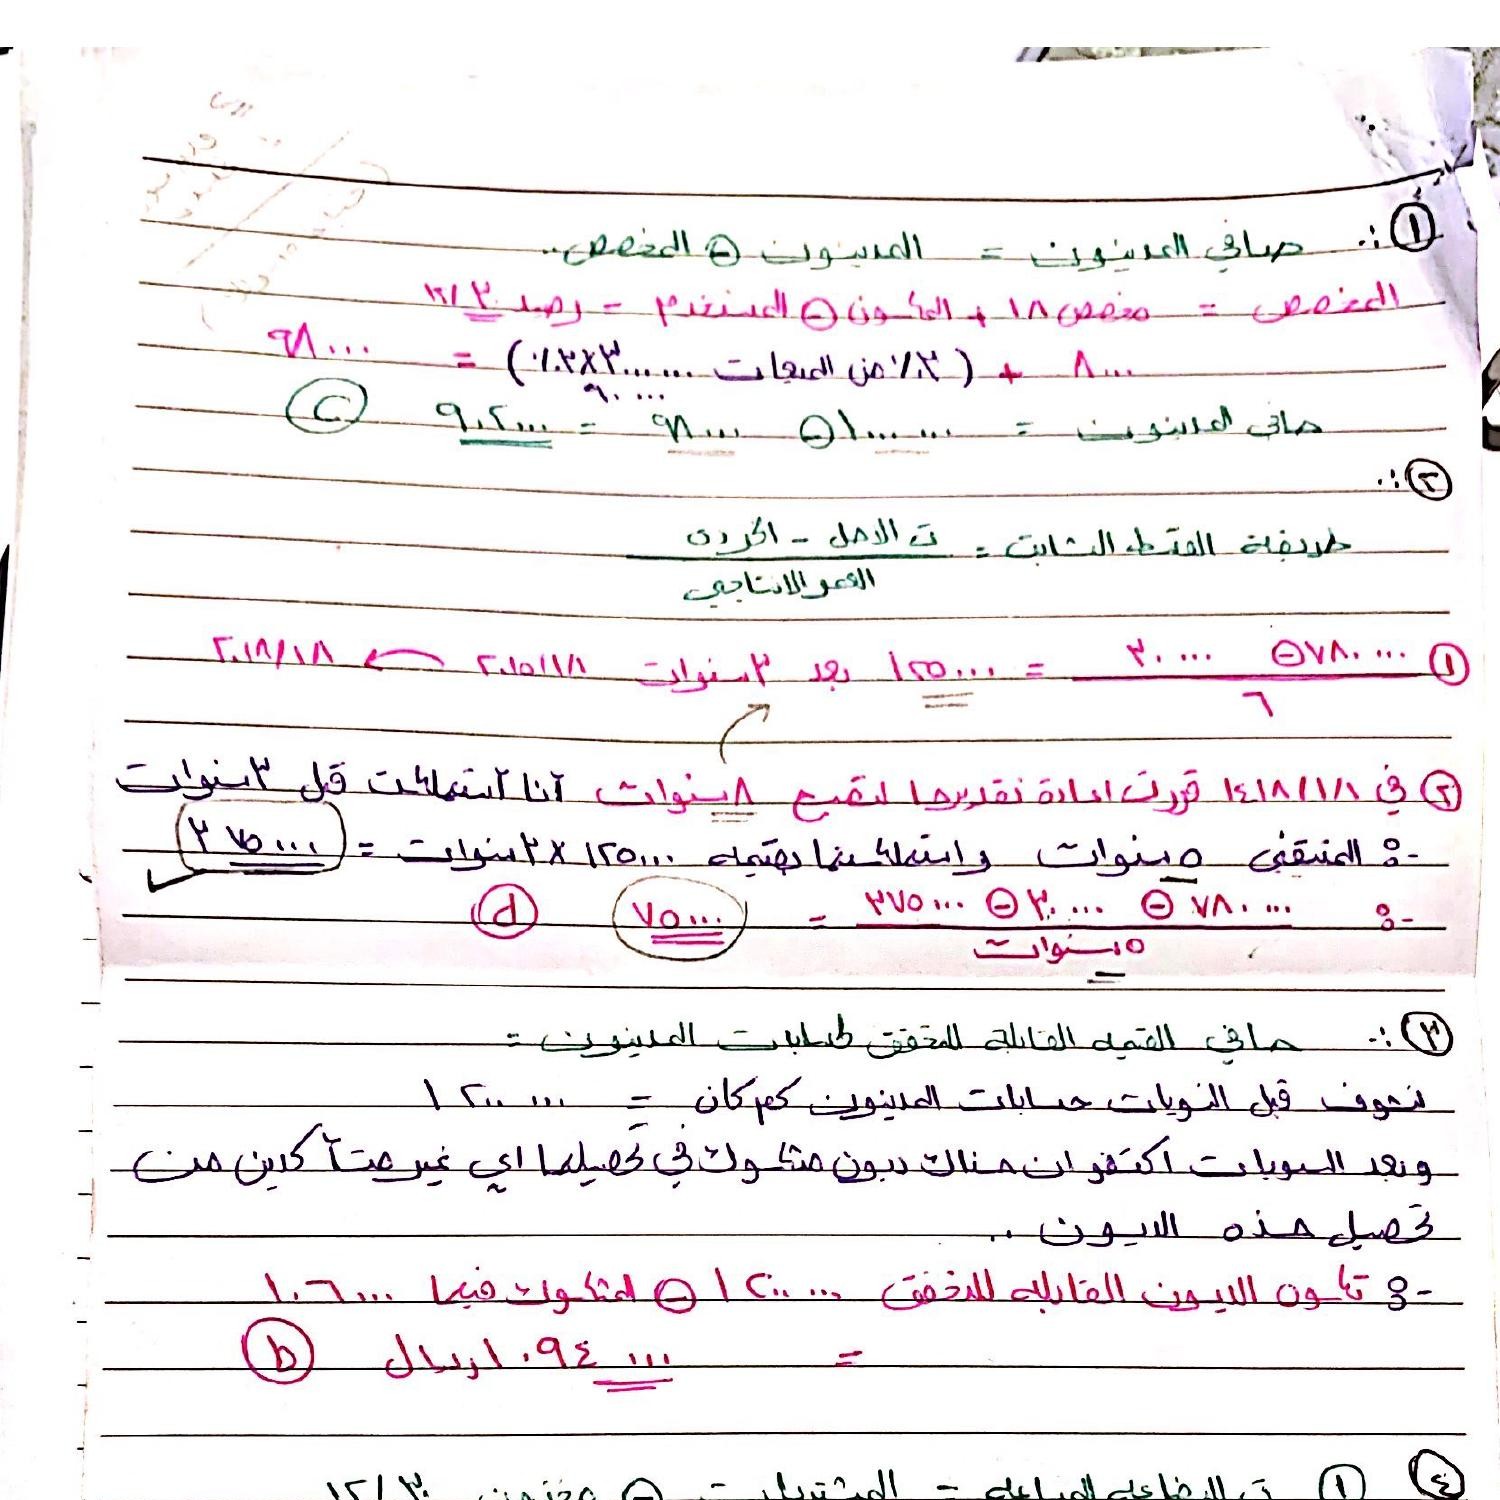 ① ∴ صافي المدينون = المدينون ⊖ المخصص ..
المخصص = مخصص ١٨ + المكون ⊖ المستخدم = رصيد ١٢/٣٠
٨٠٠٠ + (٣٪ من المبيعات ٣٠٠٠٠٠٠×٣٪) = ٩٨٠٠٠
٩٠٠٠٠
صافي المدينون = ١٠٠٠٠٠٠ ⊖ ٩٨٠٠٠ = ٩٠٢٠٠٠ C
② ∴
طريقة القسط الثابت = ت الاصل - الخردة
العمر الانتاجي
① ٧٨٠٠٠٠ ⊖ ٣٠٠٠٠ = ١٢٥٠٠٠ بعد ٣ سنوات ٢٠١٥/١/٨ ← ٢٠١٨/١/٨
٦
② في ١٤١٨/١/١ قررت اعادة تقديرها لتصبح ٨ سنوات أنا استهلكت قبل ٣ سنوات
-: المتبقي ٥ سنوات واستهلكتها بقيمه ١٢٥٠٠٠ × ٣ سنوات = ٣٧٥٠٠٠
-: ٧٨٠٠٠٠ ⊖ ٣٠٠٠٠ ⊖ ٣٧٥٠٠٠ = ٧٥٠٠٠ d
٥ سنوات
③ ∴ صافي القيمه القابله للتحقق لحسابات المدينون =
نشوف قبل التسويات حسابات المدينون كم كان = ١٢٠٠٠٠٠
وبعد التسويات اكتشفوا ان هناك ديون مشكوك في تحصيلها اي غير متأكدين من
تحصيل هذه الديون ..
-: تكون الديون القابله للتحقق ١٢٠٠٠٠٠ ⊖ المشكوك فيها ١٠٦٠٠٠
= ١٠٩٤٠٠٠ ريال b
④ ① ت البضاعه المباعه = المشتريات ⊖ مخزون ١٢/٣٠